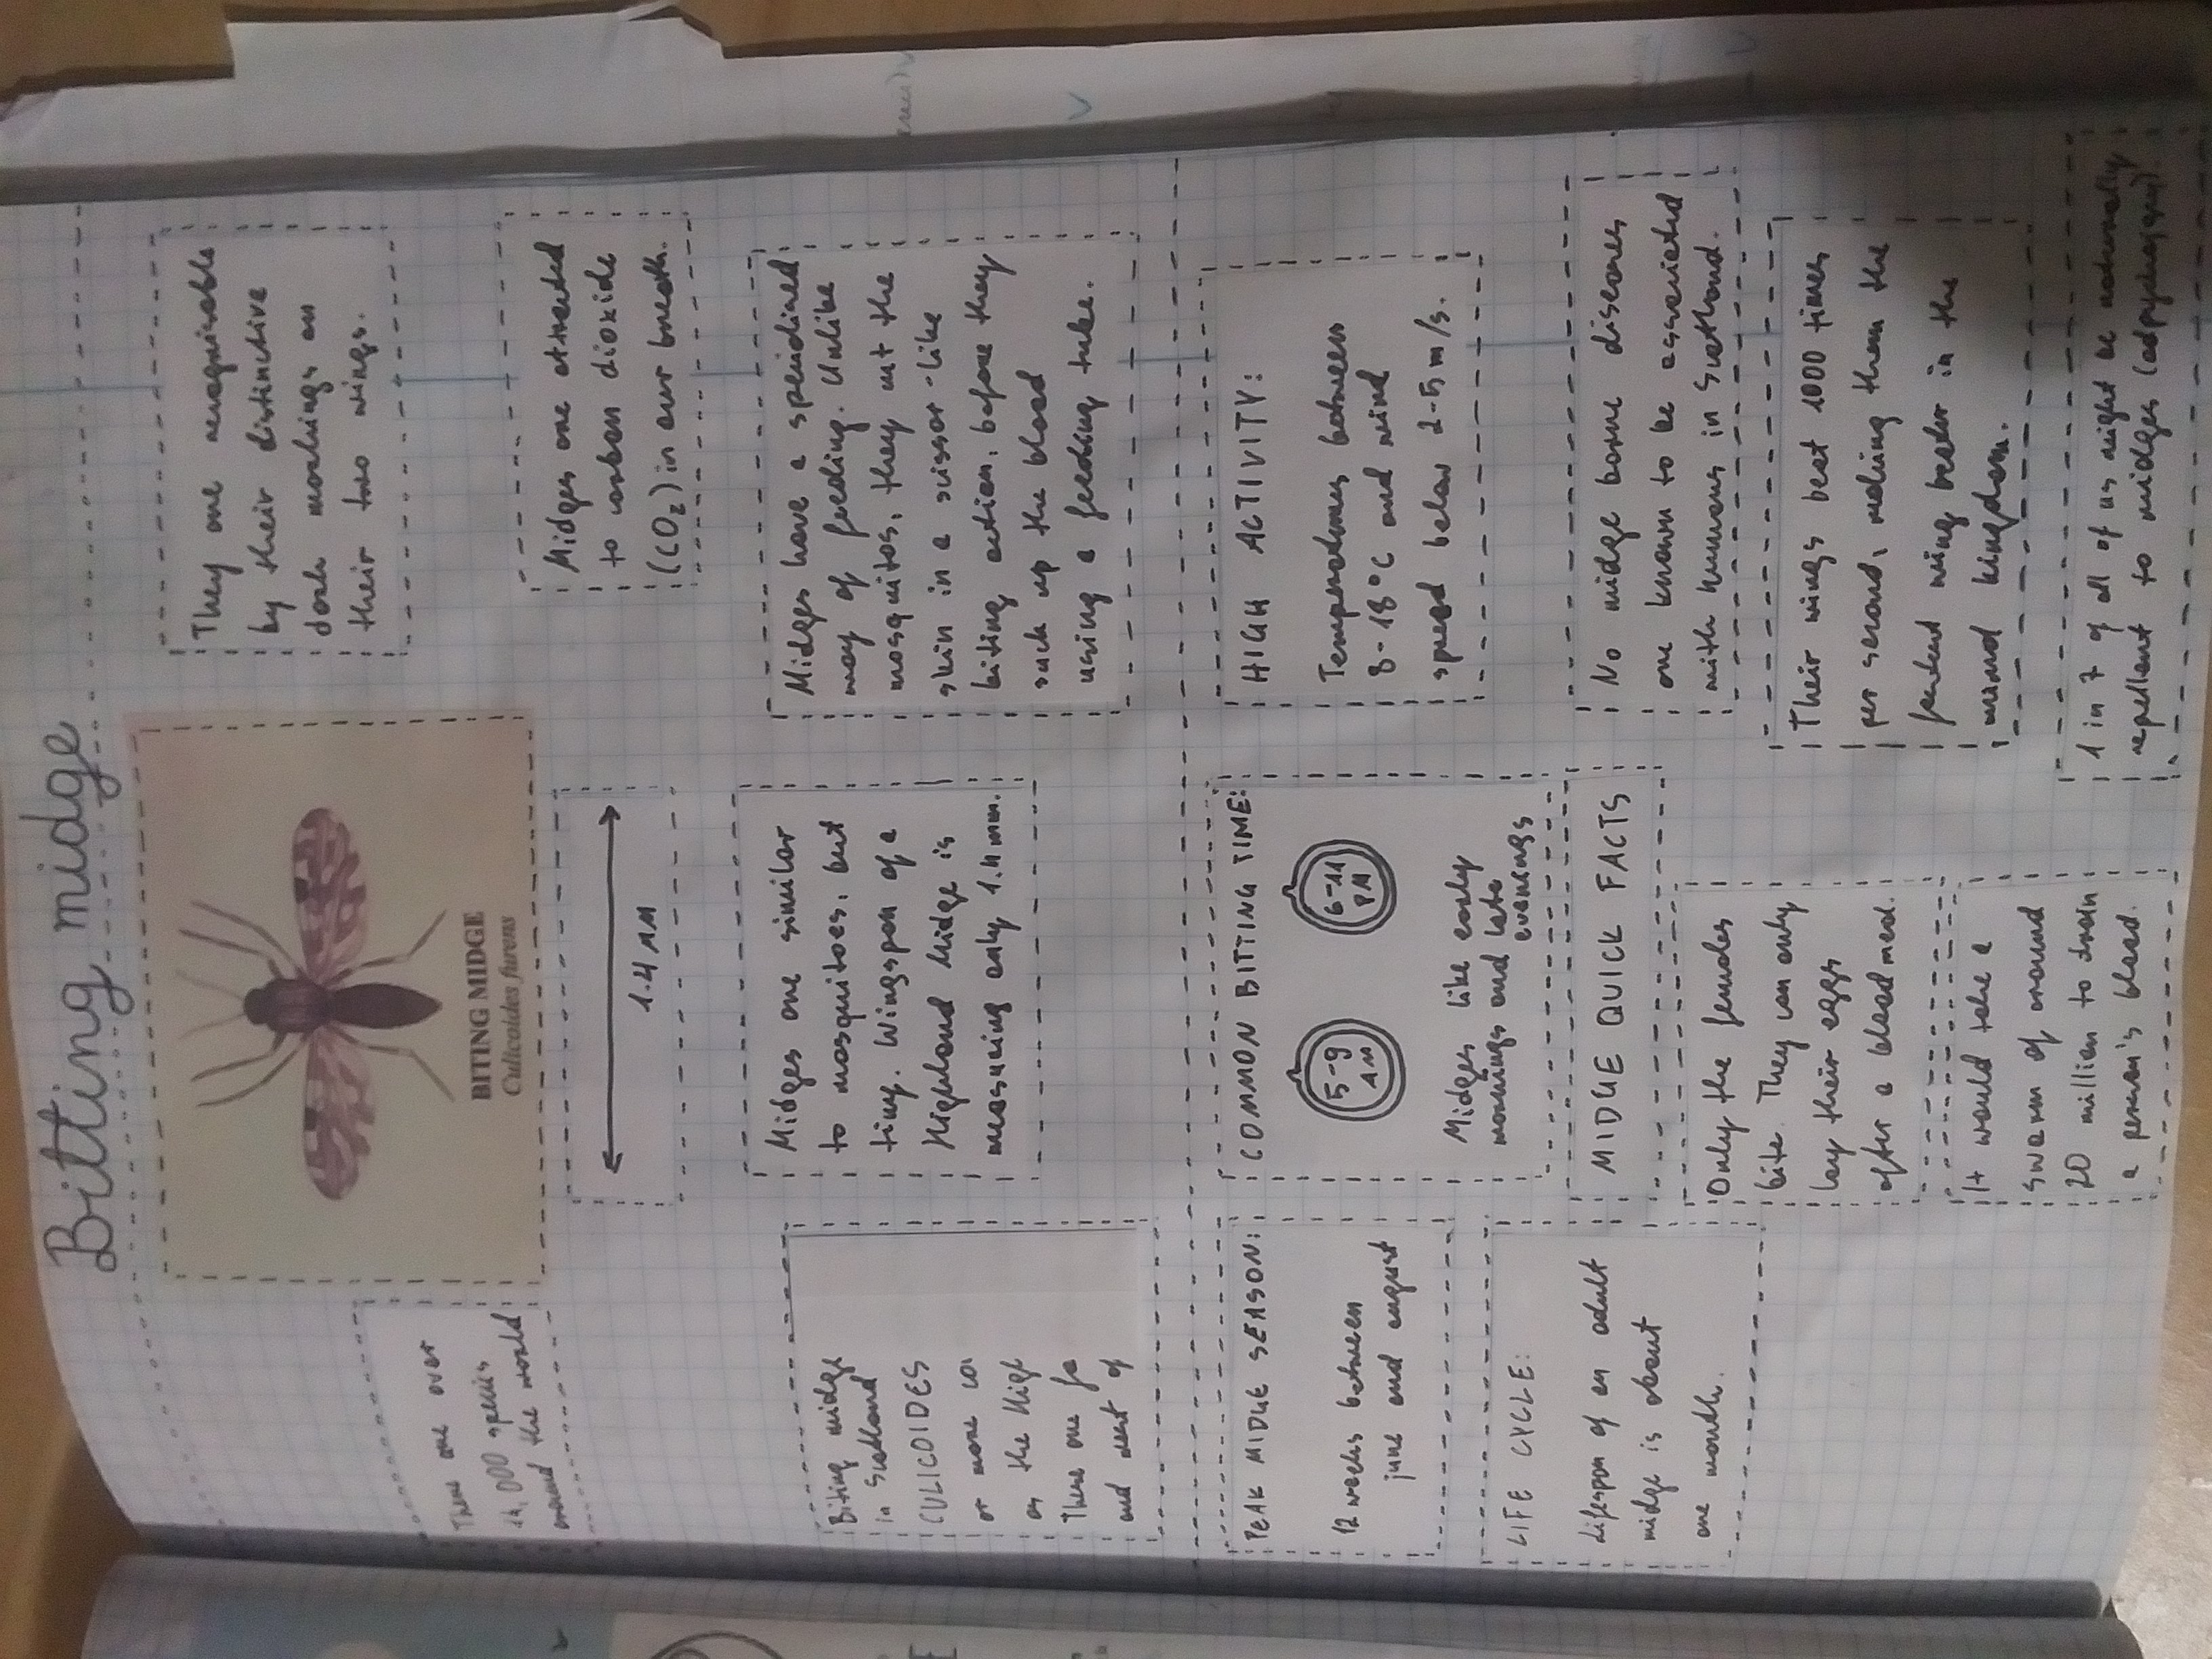 Bitting midge
There are over
4,000 species
around the world
BITING MIDGE
Culicoides furens
They are recognisable
by their distinctive
dark markings on
their two wings.
1.4 MM
Midges are attracted
to carbon dioxide
(CO₂) in our breath.
Biting midge
in Scotland
CULICOIDES
or more co
as the High
There are fo
and west of
Midges are similar
to mosquitoes, but
tiny. Wingspan of a
Highland Midge is
measuring only 1.4 mm.
Midges have a specialised
way of feeding. Unlike
mosquitos, they cut the
skin in a scissor-like
biting action, before they
suck up the blood
using a feeding tube.
PEAK MIDGE SEASON:
12 weeks between
june and august
COMMON BITTING TIME:
5-9
AM
6-11
PM
Midges like early
mornings and late
evenings
HIGH ACTIVITY:
Temperatures between
8-18°C and wind
speed below 2-5 m/s.
LIFE CYCLE:
Lifespan of an adult
midge is about
one month.
MIDGE QUICK FACTS
Only the females
bite. They can only
lay their eggs
after a blood meal.
It would take a
swarm of around
20 million to drain
a person's blood.
No midge borne diseases
are known to be associated
with humans in Scotland.
Their wings beat 1000 times
per second, making them the
fastest wing beater in the
animal kingdom.
1 in 7 of all of us might be naturally
repellant to midges